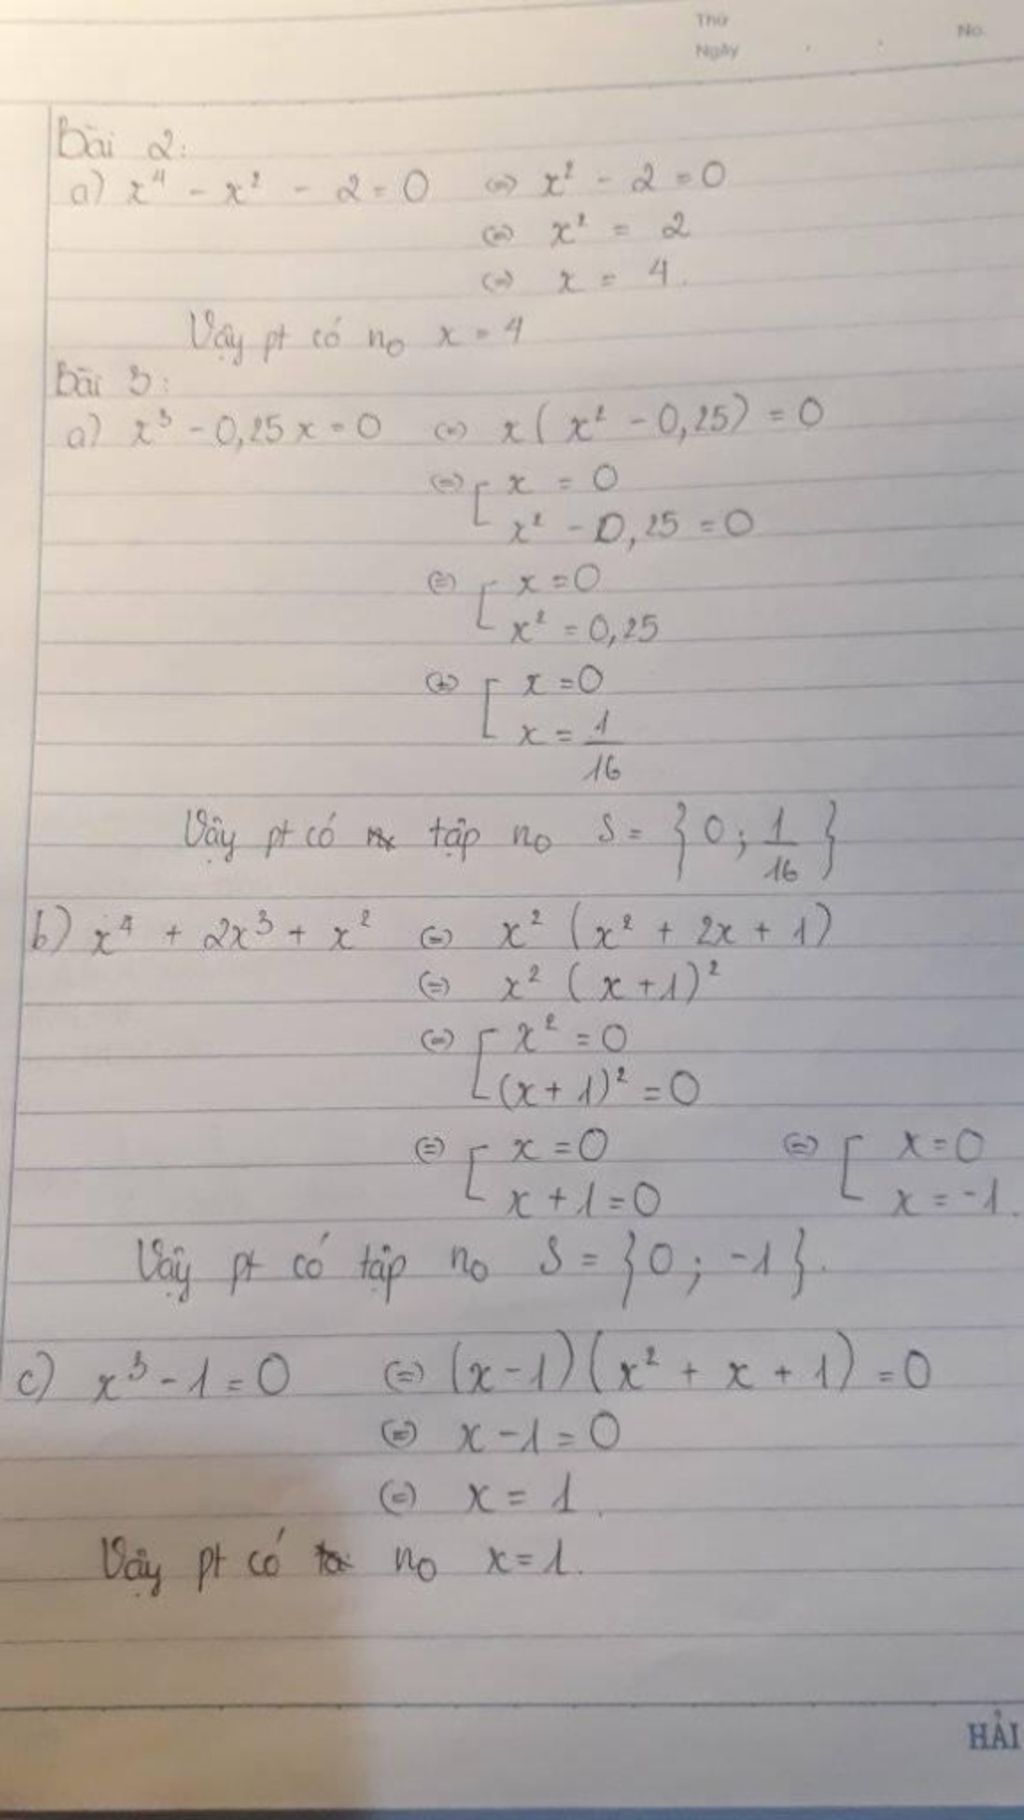 Thứ
Ngày
No.
Bài 2:
a) x⁴ - x² - 2 = 0 ⇔ x² - 2 = 0
⇔ x² = 2
⇔ x = 4.
Vậy pt có no x = 4
Bài 3:
a) x³ - 0,25x = 0 ⇔ x(x² - 0,25) = 0
⇔ [ x = 0
x² - 0,25 = 0
⇔ [ x = 0
x² = 0,25
⇔ [ x = 0
x = 1/16
Vậy pt có tập no S = {0; 1/16}
b) x⁴ + 2x³ + x² ⇔ x² (x² + 2x + 1)
⇔ x² (x + 1)²
⇔ [ x² = 0
(x + 1)² = 0
⇔ [ x = 0 ⇔ [ x = 0
x + 1 = 0 x = -1.
Vậy pt có tập no S = {0; -1}.
c) x³ - 1 = 0 ⇔ (x - 1)(x² + x + 1) = 0
⇔ x - 1 = 0
⇔ x = 1.
Vậy pt có no x = 1.
HẢI